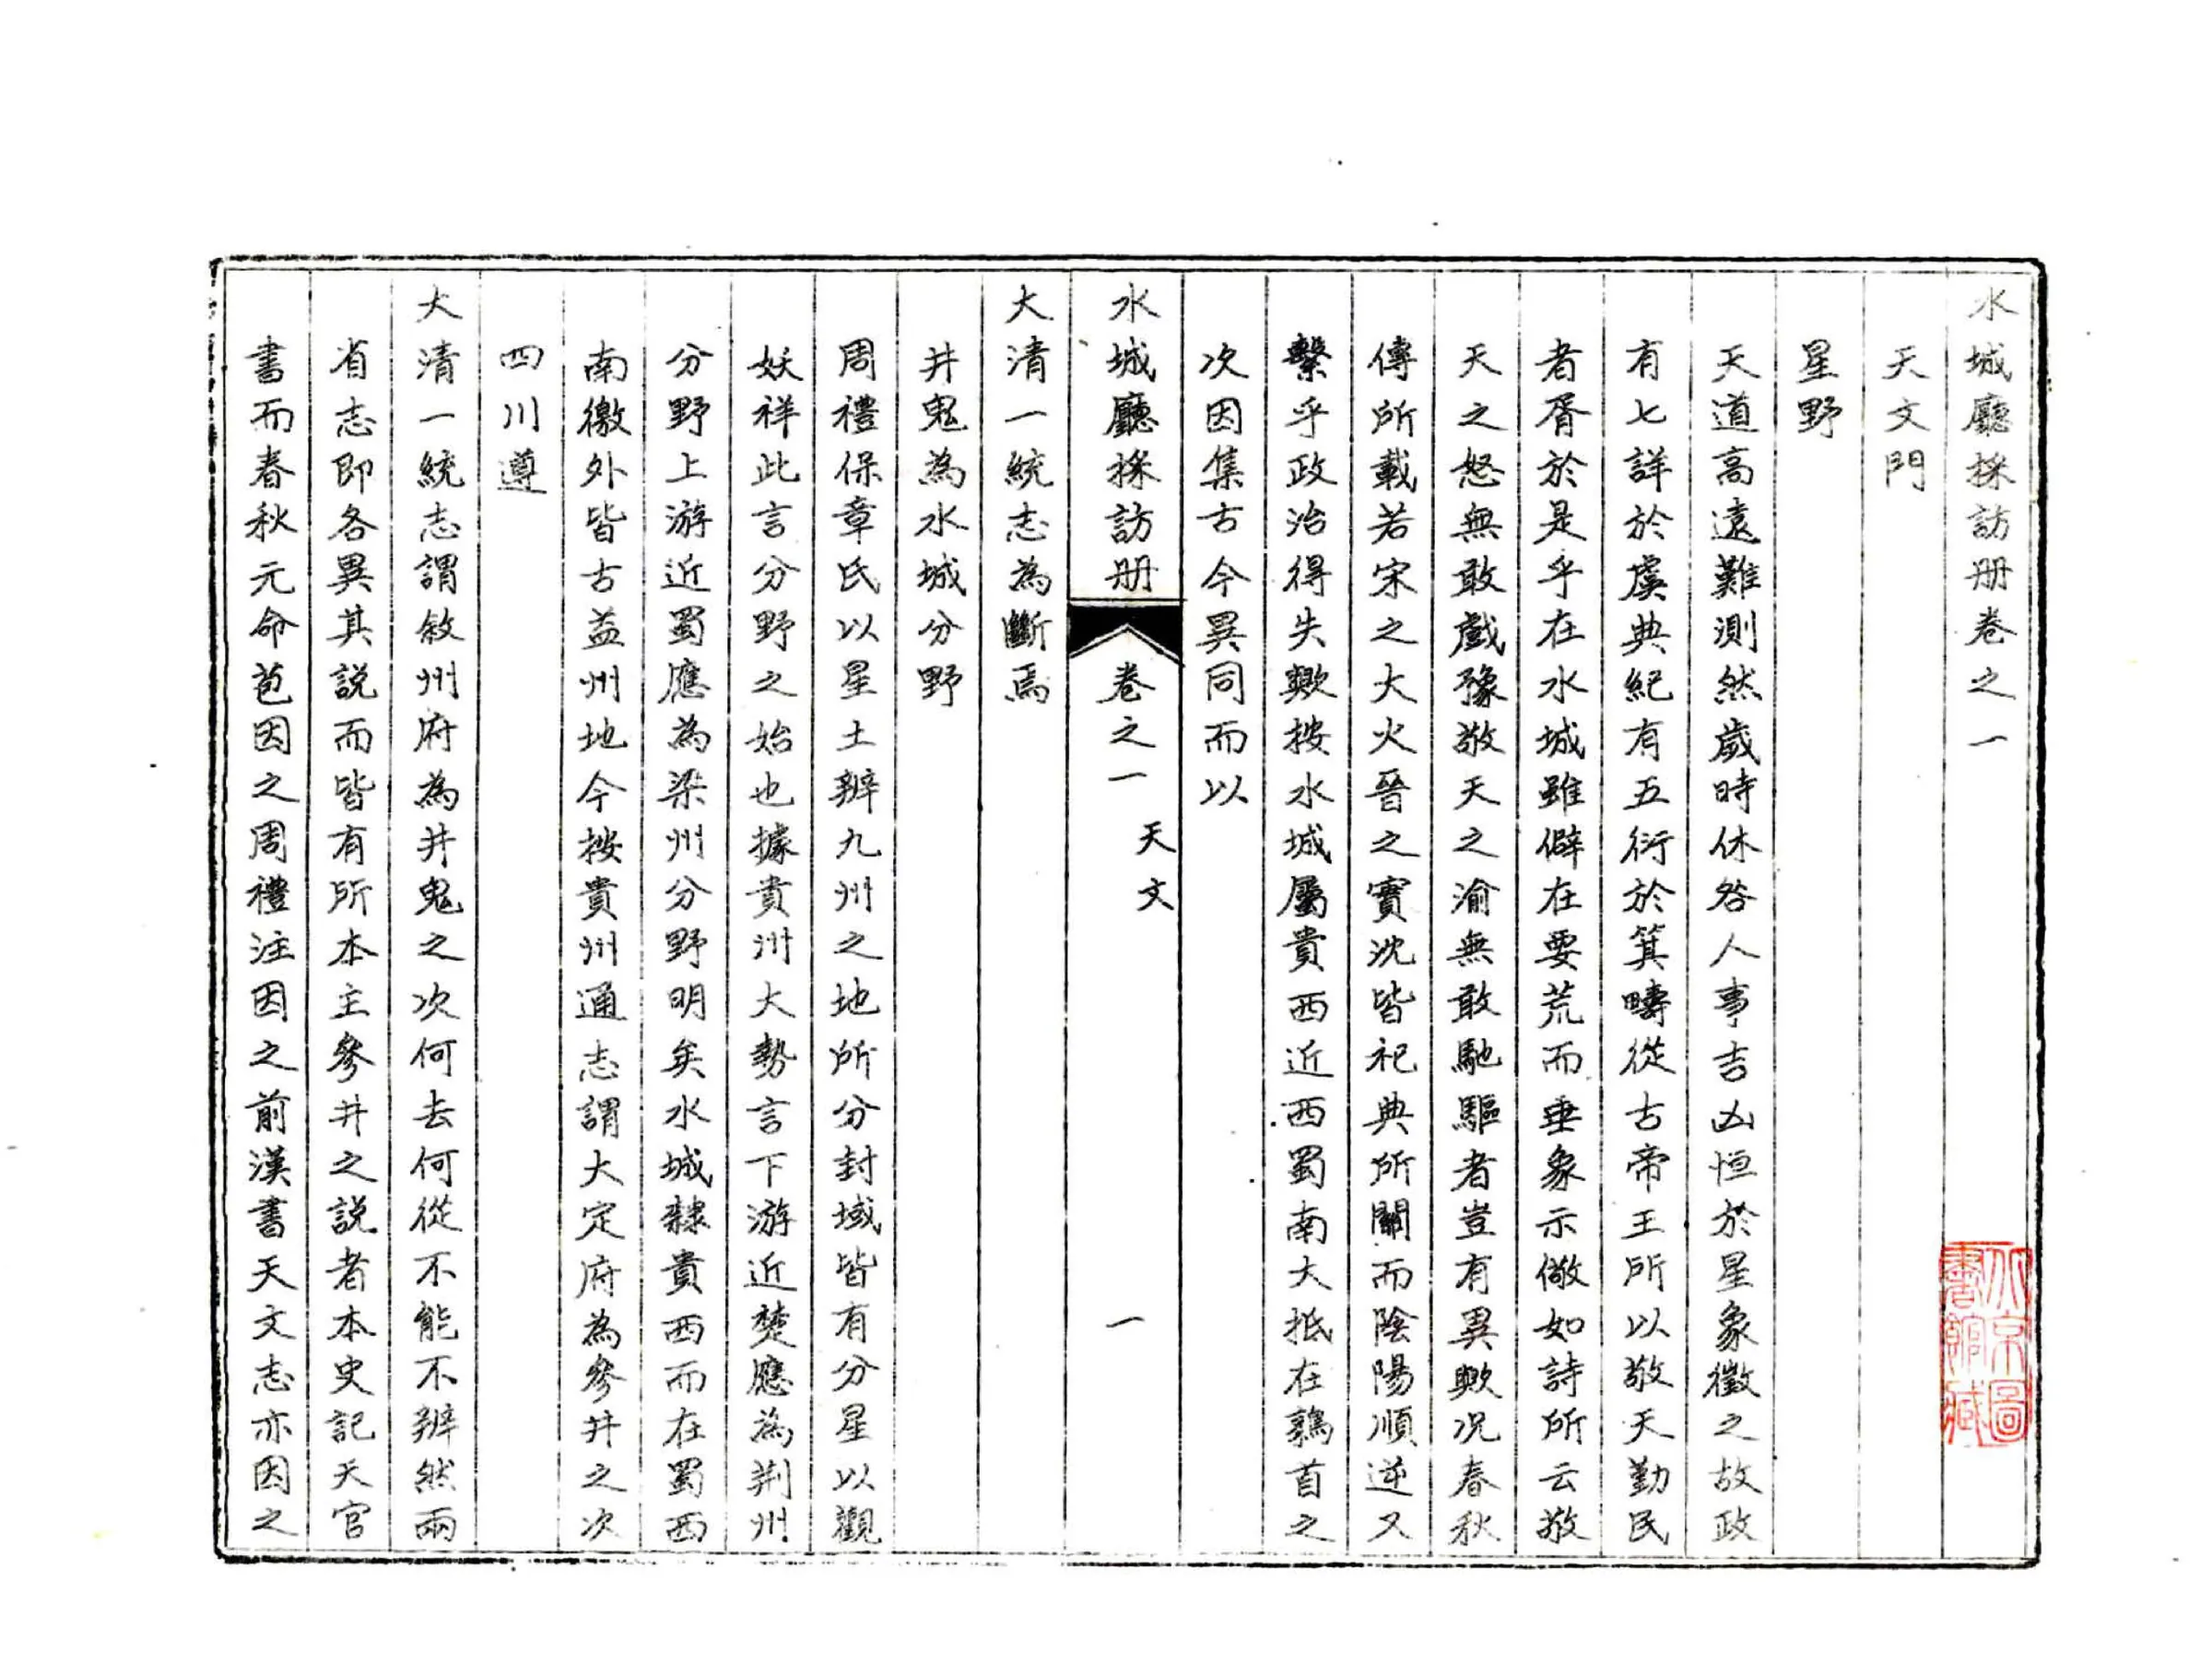 水城廳採訪册卷之一
天文門
星野
天道高遠難測然歲時休咎人事吉凶恒於星象徵之故政
有七詳於虞典紀有五衍於箕疇從古帝王所以敬天勤民
者胥於是乎在水城雖僻在要荒而垂象示儆如詩所云敬
天之怒無敢戲豫敬天之渝無敢馳驅者豈有異歟况春秋
傳所載若宋之大火晉之實沈皆祀典所關而陰陽順逆又
繫乎政治得失歟按水城屬貴西近西蜀南大抵在鶉首之
次因集古今異同而以
水城廳採訪册 卷之一 天文 一
大清一統志為斷焉
井鬼為水城分野
周禮保章氏以星土辨九州之地所分封域皆有分星以觀
妖祥此言分野之始也據貴州大勢言下游近楚應為荆州
分野上游近蜀應為梁州分野明矣水城隸貴西而在蜀西
南徼外皆古益州地今按貴州通志謂大定府為參井之次
四川遵
大清一統志謂敘州府為井鬼之次何去何從不能不辨然兩
省志即各異其説而皆有所本主參井之説者本史記天官
書而春秋元命苞因之周禮注因之前漢書天文志亦因之
北京圖
書館藏